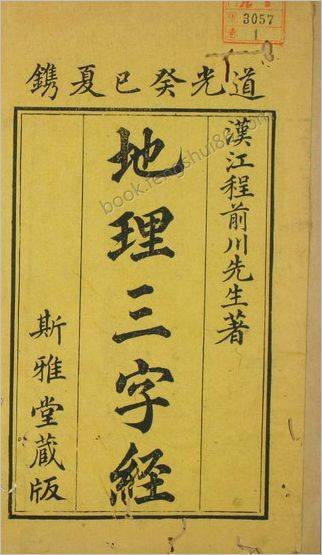 道光癸巳夏鐫
漢江程前川先生著
地理三字經
斯雅堂蔵版
3057
1